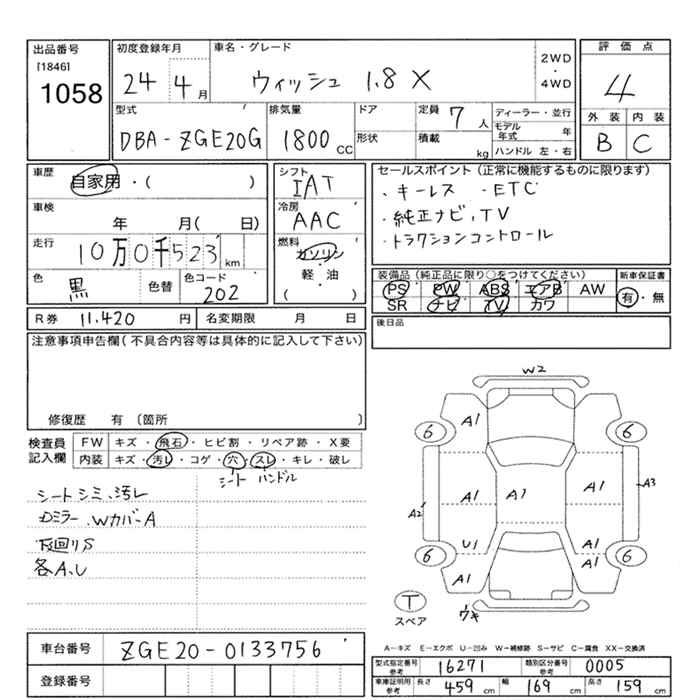 出品番号 初度登録年月 車名・グレード 2WD・4WD 評価点
[1846] 1058 24 4月 ウィッシュ 1.8 X 4
型式 排気量 ドア 定員 7人 ディーラー・並行 外装 内装
DBA-ZGE20G 1800CC 形状 積載 kg モデル年式 年 B C
ハンドル 左・右
車歴 自家用・( ) シフト IAT セールスポイント(正常に機能するものに限ります)
車検 年 月( 日) 冷房 AAC ・キーレス ・ETC
・純正ナビ、TV
走行 10万0千523km 燃料 ガソリン・軽・油 ( ) ・トラクションコントロール
色 黒 色替 色コード 202 装備品(純正品に限り○をつけてください) 新車保証書
PS PW ABS エアB AW 有・無
SR ナビ TV カワ
R券 11.420円 名変期限 月 日 後日品
注意事項申告欄(不具合内容等は具体的に記入して下さい)
修復歴 有 〔箇所 〕
検査員記入欄 FW キズ・飛石・ヒビ割・リペア跡・X要
内装 キズ・汚レ・コゲ・穴・スレ・キレ・破レ
シート ハンドル
シートシミ、汚レ
Dミラー、Wカバ-A
下回りS
各A、U
W2
6 A1 6
A2 A1 A1 A1 A3
U1 A1
6 A1 6
T スペア ワキ
A−キズ E−エクボ U−凹み W−補修跡 S−サビ C−腐食 XX−交換済
車台番号 ZGE20-0133756 型式指定番号 参考 16271 類別区分番号 参考 0005
登録番号 車庫証明用 参考 長さ 459cm 幅 169cm 高さ 159cm